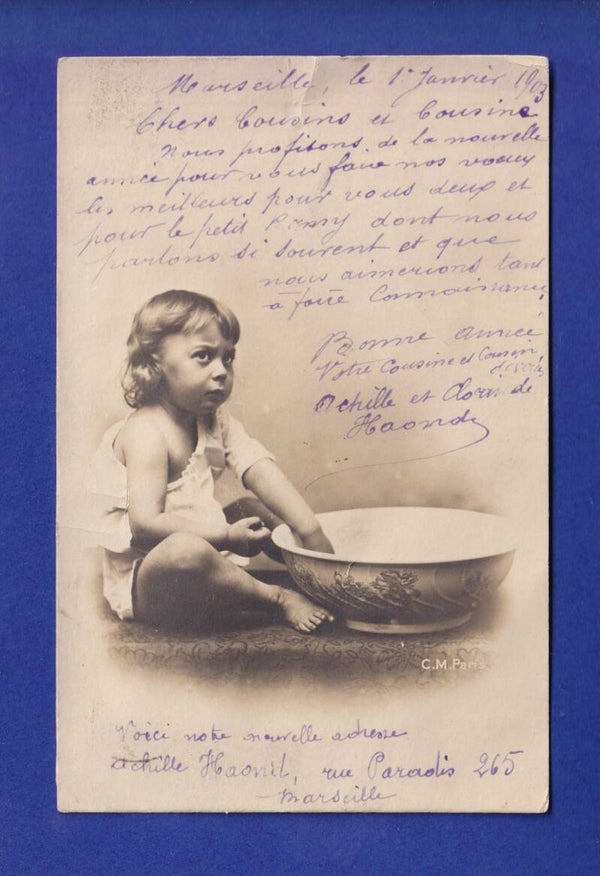 Marseille, le 1er Janvier 1903
Chers Cousins et Cousine
Nous profitons de la nouvelle
année pour vous faire nos voeux
les meilleurs pour vous deux et
pour le petit dont nous
parlons si souvent et que
nous aimerions tant
à faire Connaissance
Bonne année
Votre Cousine et Cousin
Achille et
C.M. Paris.
Voici notre nouvelle adresse
Achille rue Paradis 265
Marseille